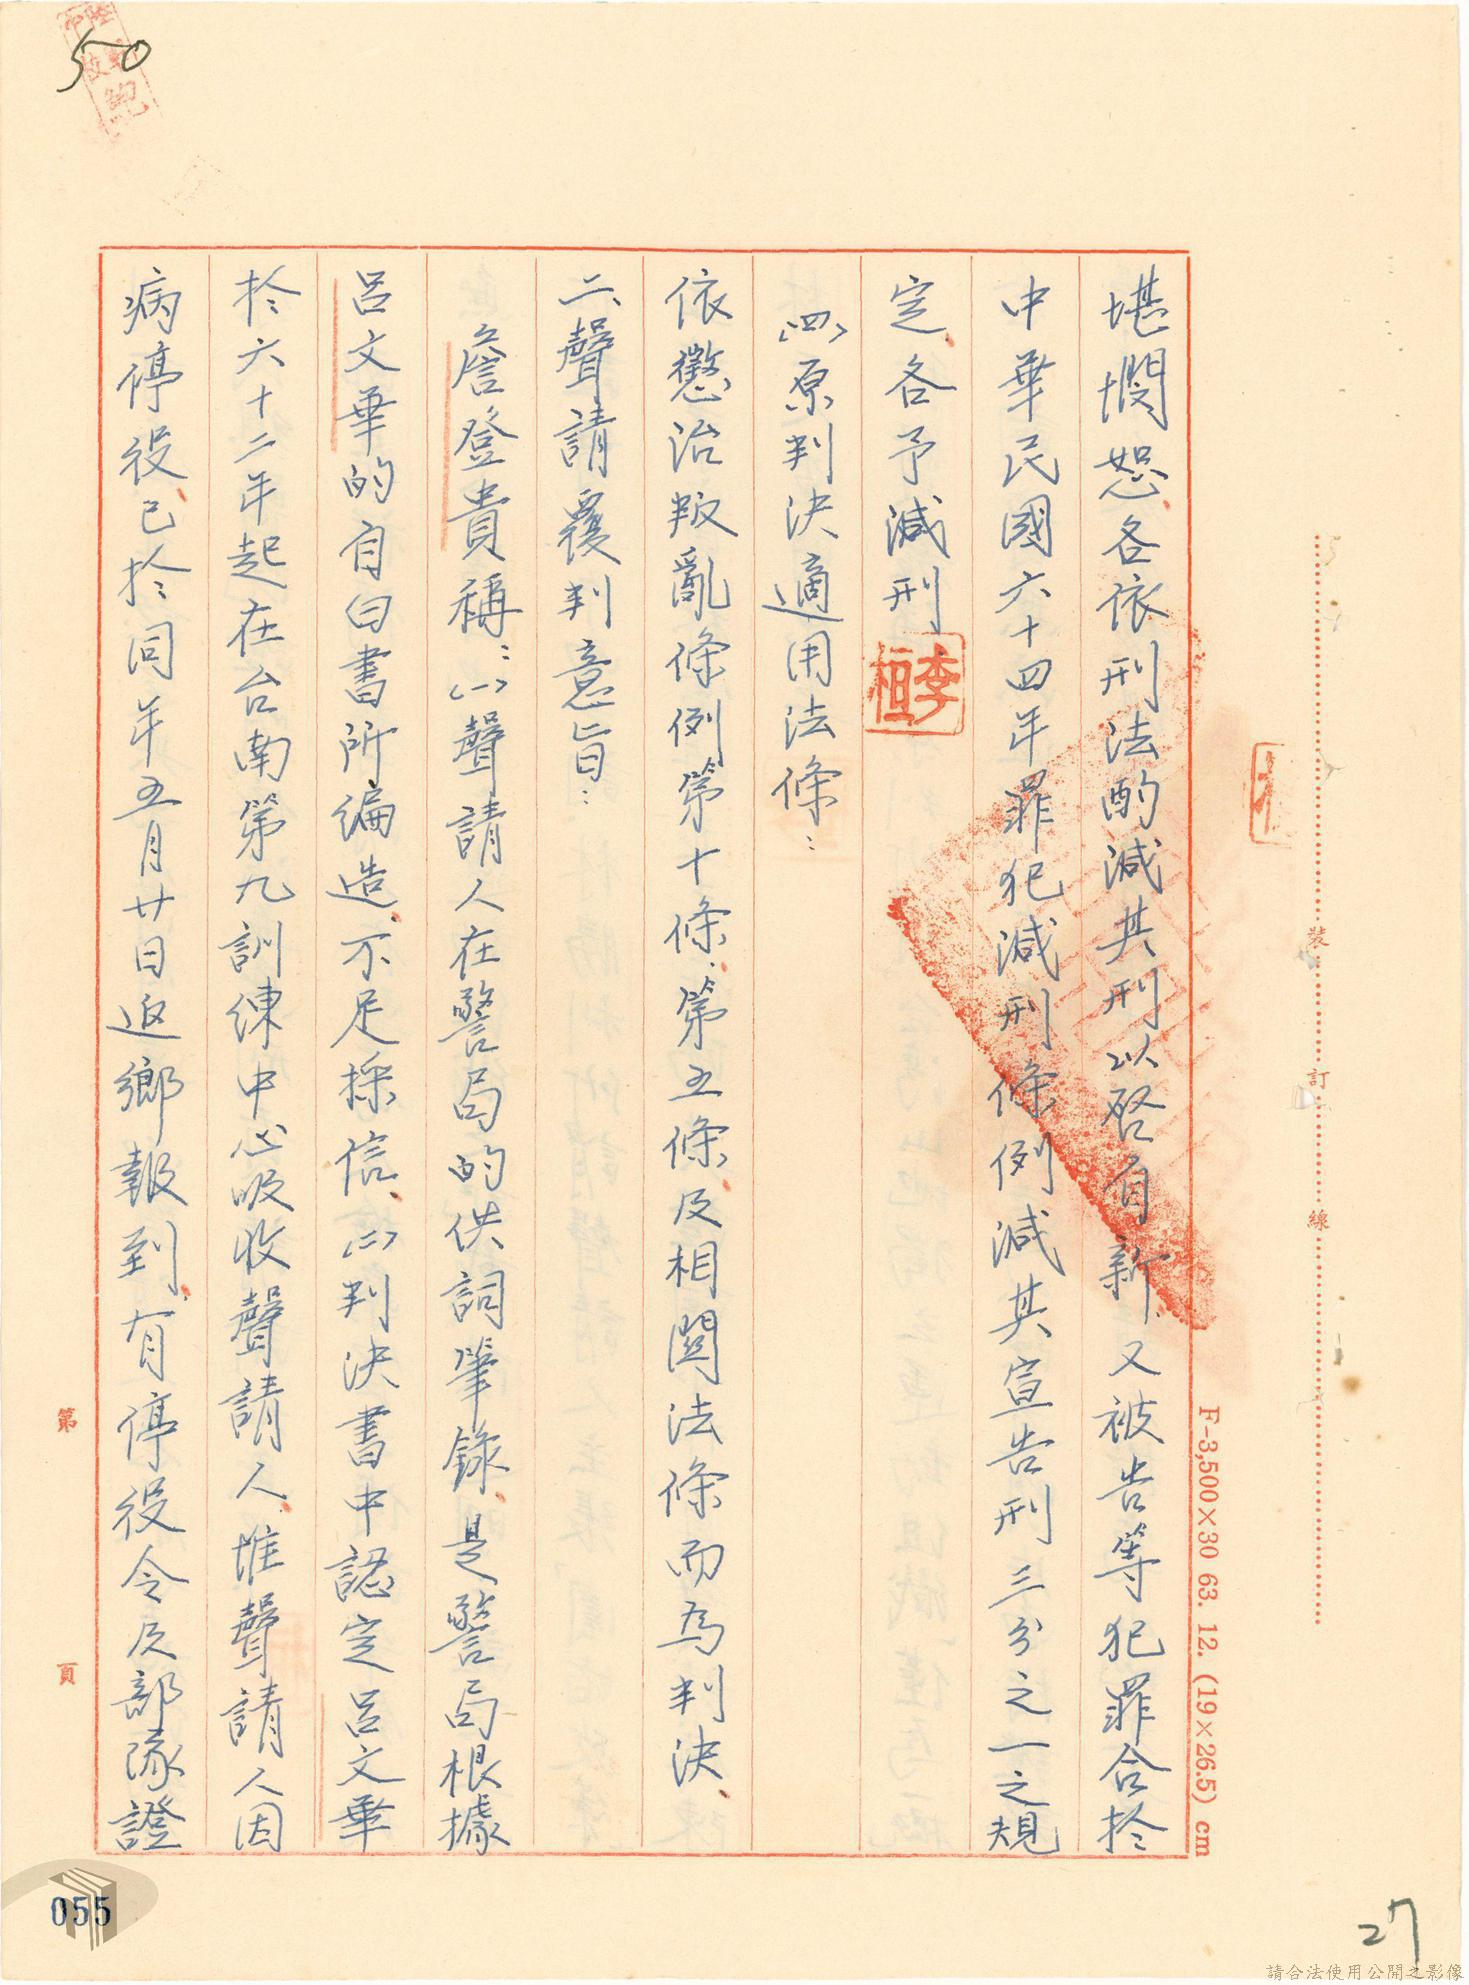 50
堪憫恕、各依刑法酌減其刑以啓自新、又被告等犯罪合於
中華民國六十四年罪犯減刑條例減其宣告刑三分之一之規
定、各予減刑
李桓
㈣原判決適用法條：
依懲治叛亂條例第十條、第五條、及相關法條而為判決、
二、聲請覆判意旨：
詹登貴稱：㈠聲請人在警局的供詞筆錄、是警局根據
呂文華的自白書所編造、不足採信、㈡判決書中認定呂文華
於六十二年起在台南第九訓練中心吸收聲請人、惟聲請人因
病停役、已於同年五月廿日返鄉報到、有停役令及部隊證
裝
訂
線
F-3,500×30 63. 12. (19×26.5) cm
第
頁
055
27
請合法使用公開之影像